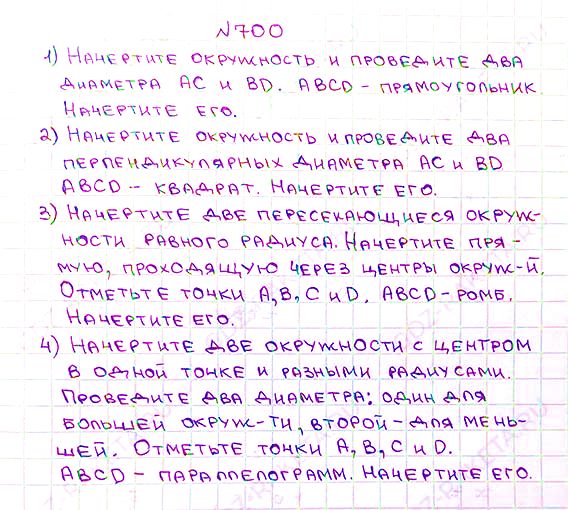 №700
1) Начертите окружность и проведите два
диаметра AC и BD. ABCD – прямоугольник
Начертите его.
2) Начертите окружность и проведите два
перпендикулярных диаметра AC и BD
ABCD – квадрат. Начертите его.
3) Начертите две пересекающиеся окруж-
ности равного радиуса. Начертите пря-
мую, проходящую через центры окруж-й.
Отметьте точки A, B, C и D. ABCD – ромб.
Начертите его.
4) Начертите две окружности с центром
в одной точке и разными радиусами.
Проведите два диаметра: один для
большей окруж-ти, второй – для мень-
шей. Отметьте точки A, B, C и D.
ABCD – параллелограмм. Начертите его.